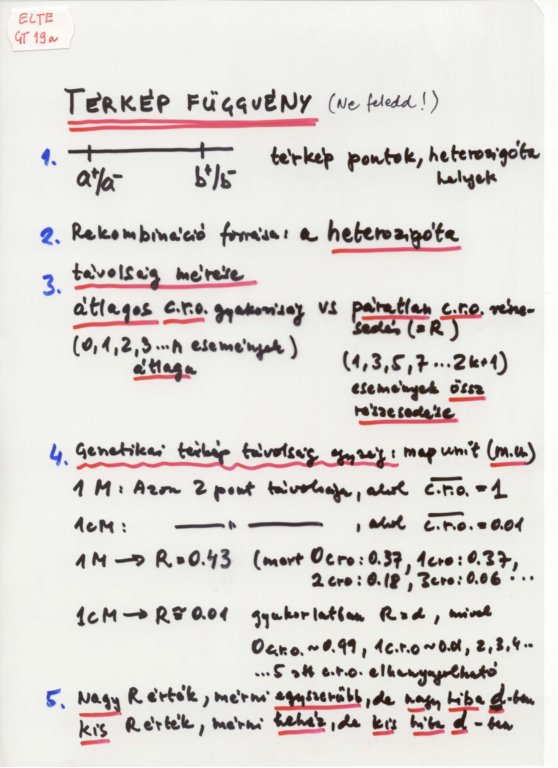 ELTE
GT 19a
TÉRKÉP FÜGGVÉNY (Ne feledd!)
1. a⁺/a⁻ b⁺/b⁻ térkép pontok, heterozigóta
helyek
2. Rekombináció forrása: a heterozigóta
3. távolság mérése
átlagos c.r.o. gyakoriság vs páratlan c.r.o. része-
sedés (=R)
(0,1,2,3...n események)
átlaga
(1,3,5,7...2k+1)
események össz
részesedése
4. Genetikai térkép távolság egység: map unit (m.u)
1 M: Azon 2 pont távolsága, ahol c.r.o. = 1
1cM: —— " —— , ahol c.r.o. = 0.01
1M → R=0.43 (mert 0cro: 0.37, 1cro: 0.37,
2cro: 0.18, 3cro: 0.06 ...
1cM → R≅0.01 gyakorlatban R=d, mivel
0c.r.o. ~ 0.99, 1c.r.o ~ 0.01, 2,3,4..
...5 c.r.o. elhanyagolható
5. Nagy R érték, mérni egyszerűbb, de nagy hiba d-ben
kis R érték, mérni nehéz, de kis hiba d-ben